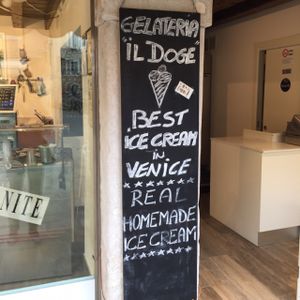 GELATERIA
"IL DOGE"
BEST
ICE CREAM
IN
VENICE
REAL
HOMEMADE
ICE CREAM
NITE